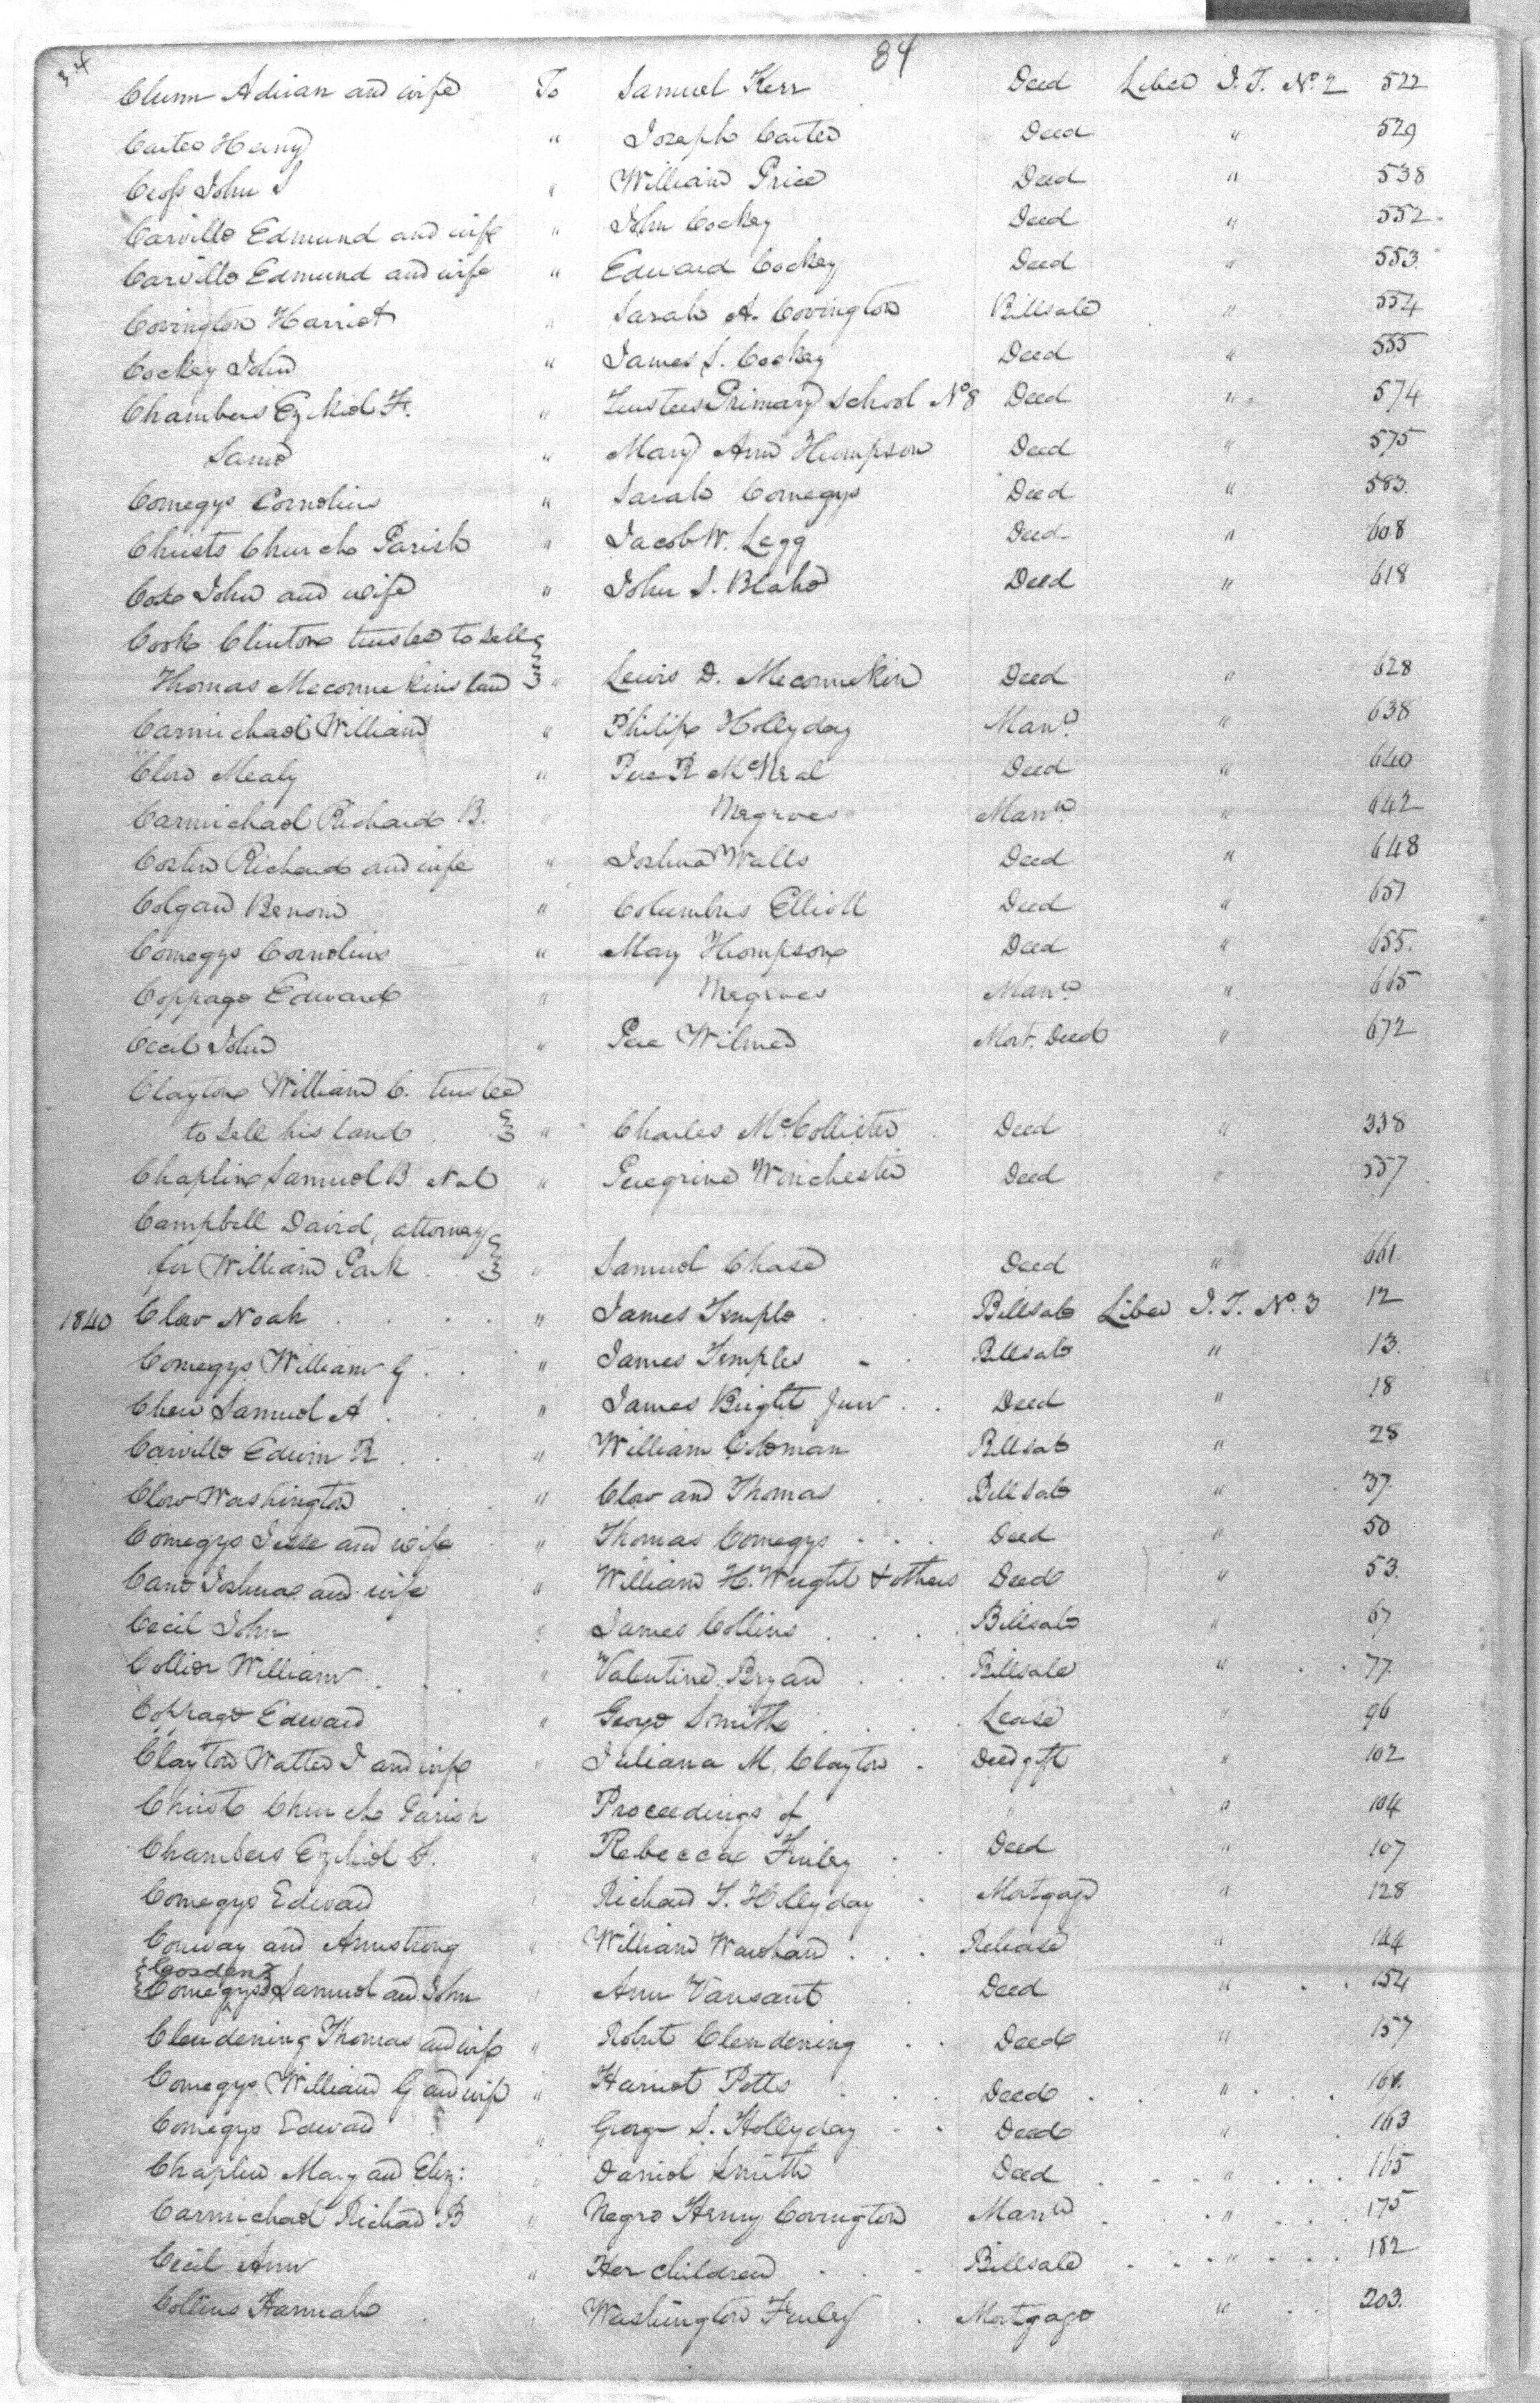 34
84
Clunn Adrian and wife To Samuel Kerr Deed Liber J. T. No. 2 522
Carter Henry " Joseph Carter Deed " 529
Cross John S " William Price Deed " 538
Carvillo Edmund and wife " John Cockey Deed " 552
Carvillo Edmund and wife " Edward Cockey Deed " 553
Covington Harriet " Sarah A. Covington Billsale " 554
Cockey John " James S. Cockey Deed " 555
Chambers Ezekiel F. " Trustees Primary School No 8 Deed " 574
Same " Mary Ann Thompson Deed " 575
Comegys Cornelius " Sarah Comegys Deed " 583
Christs Church Parish " Jacob W. Legg Deed " 608
Cox John and wife " John S. Blake Deed " 618
Cook Clinton trustee to sell
Thomas Meconnekins land " Lewis D. Meconnekin Deed " 628
Carmichael William " Philip Hollyday Mann. " 638
Clow Mealy " Pere R McNeal Deed " 640
Carmichael Richard B. " Negroes Mann. " 642
Costen Richard and wife " Joshua Walls Deed " 648
Colgan Benoni " Columbus Elliott Deed " 651
Comegys Cornelius " Mary Thompson Deed " 655.
Coppage Edward " Negroes Mann. " 665
Cecil John " Pere Wilmer Mort. Deed " 672
Clayton William C. trustee
to sell his land " Charles McCollister Deed " 338
Chaplin Samuel B. et al " Peregrine Winchester Deed " 557
Campbell David, attorney
for William Park " Samuel Chase Deed " 661.
1840 Clow Noah " James Temple Billsale Liber J. T. No. 3 12
Comegys William G " James Temples Billsale " 13.
Chew Samuel A " James Bright Junr Deed " 18
Carvillo Edwin R " William Coleman Billsale " 28
Clow Washington " Clow and Thomas Bill Sale " 37.
Comegys Jesse and wife " Thomas Comegys Deed " 50
Cane Joshua and wife " William H. Wright & others Deed " 53.
Cecil John " James Collins Billsale " 67
Collier William " Valentine Bryan Billsale " 77.
Coppage Edward " George Smith Lease " 96
Clayton Walter J and wife " Juliana M. Clayton Deed gift " 102
Christ Church Parish Proceedings of " " 104
Chambers Ezekiel F. " Rebecca Finley Deed " 107
Comegys Edward " Richard T. Hollyday Mortgage " 128
Conway and Armstrong " William Washam Release " 144
Cosden
Comegys Samuel and John " Ann Vansant Deed " 154
Clendening Thomas and wife " Robert Clendening Deed " 157
Comegys William G and wife " Harriet Potts Deed " 161.
Comegys Edward " George S. Hollyday Deed " 163
Chaplin Mary and Eliz: " Daniel Smith Deed " 165
Carmichael Richard B " Negro Henry Covington Mann " 175
Cecil Ann " Her children Billsale " 182
Collins Hannah " Washington Finley Mortgage " 203.